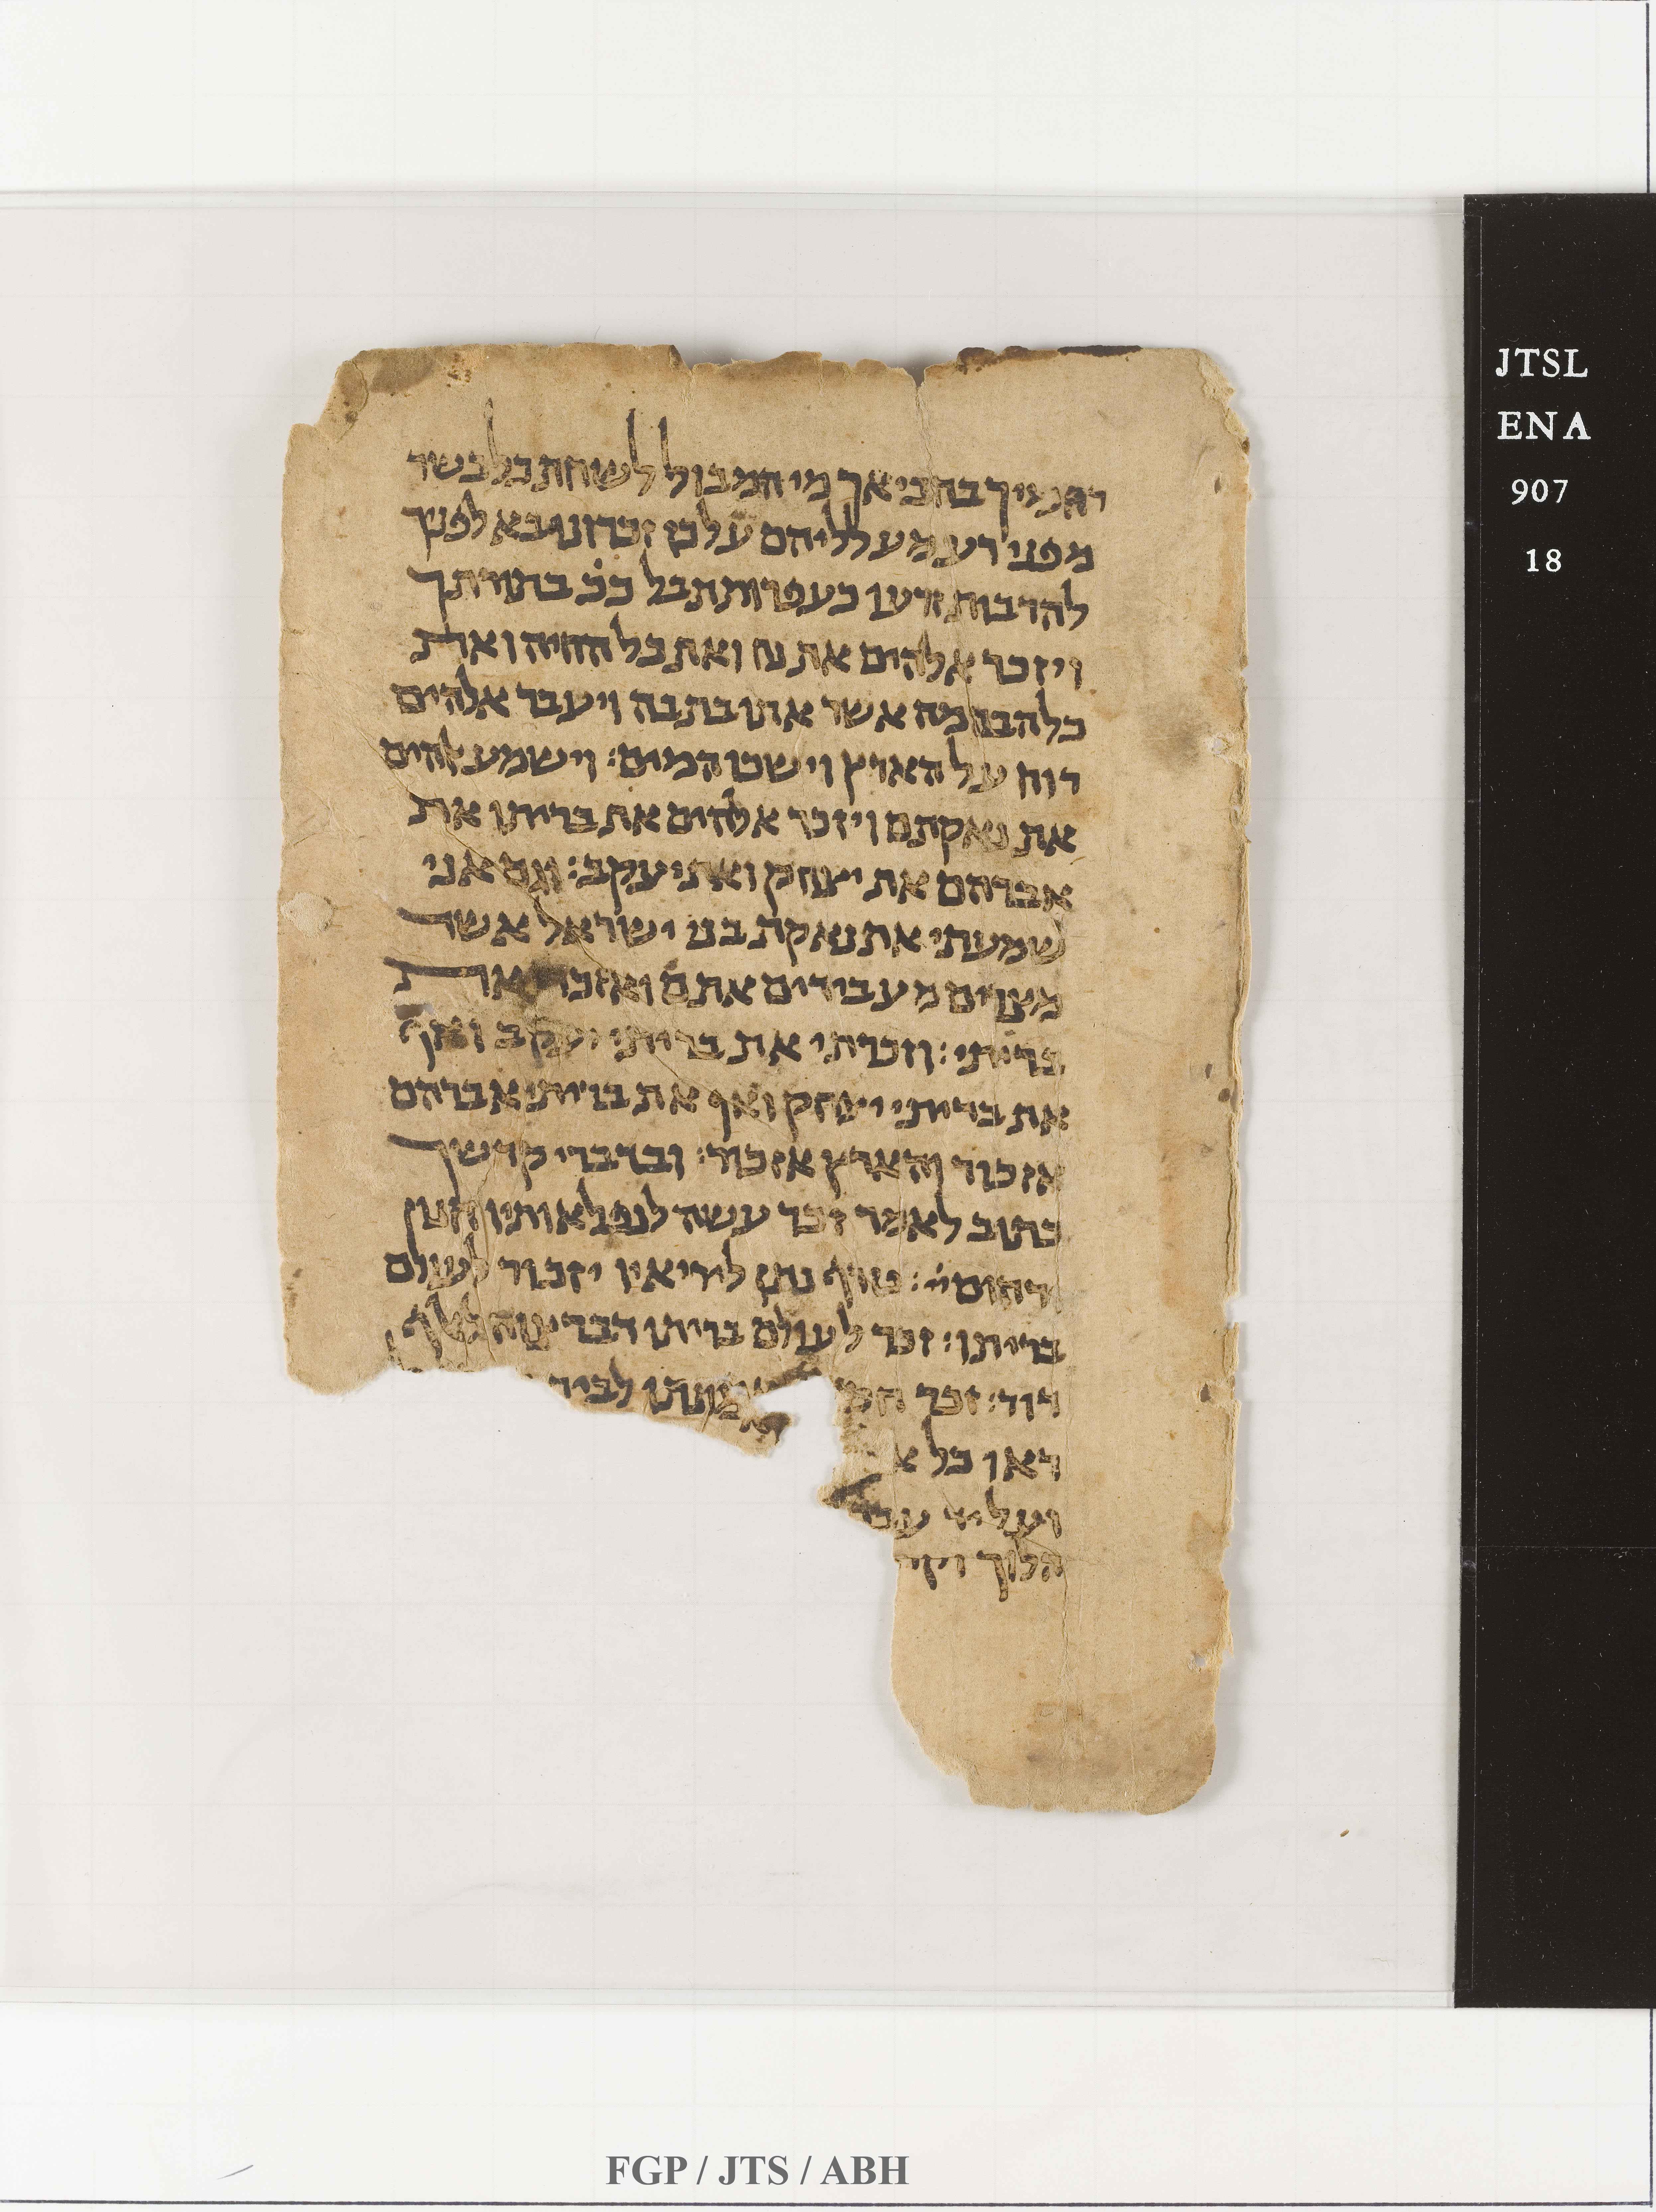 רחמיך בהביאך מי המבול לשחת כל בשר
מפני רע מעלליהם על כן זכרונו בא לפניך
להרבות זרעו כעפרות תבל ככ בתורתך
ויזכר אלהים את נח ואת כל החיה ואת
כל הבהמה אשר אתו בתבה ויעבר אלהים
רוח על הארץ וישכו המים: וישמע אלהים
את נאקתם ויזכר אלהים את בריתו את
אברהם את יצחק ואת יעקב: וגם אני
שמעתי את נאקת בני ישראל אשר
מצרים מעבידים אתם ואזכר את
בריתי: וזכרתי את בריתי יעקב ואף
את בריתי יצחק ואף את בריתי אברהם
אזכור והארץ אזכור: ובדברי קדשך
כתוב לאמר זכר עשה לנפלאותיו חנון
ורחום יי: טרף נתן ליריאיו יזכור לעולם
בריתו: זכר לעולם בריתו דבר צוה לאלף
דור: זכר ואמונתו לבית
ראו כל
ועל עבד
הלוך
JTSL
ENA
907
18
FGP / JTS / ABH